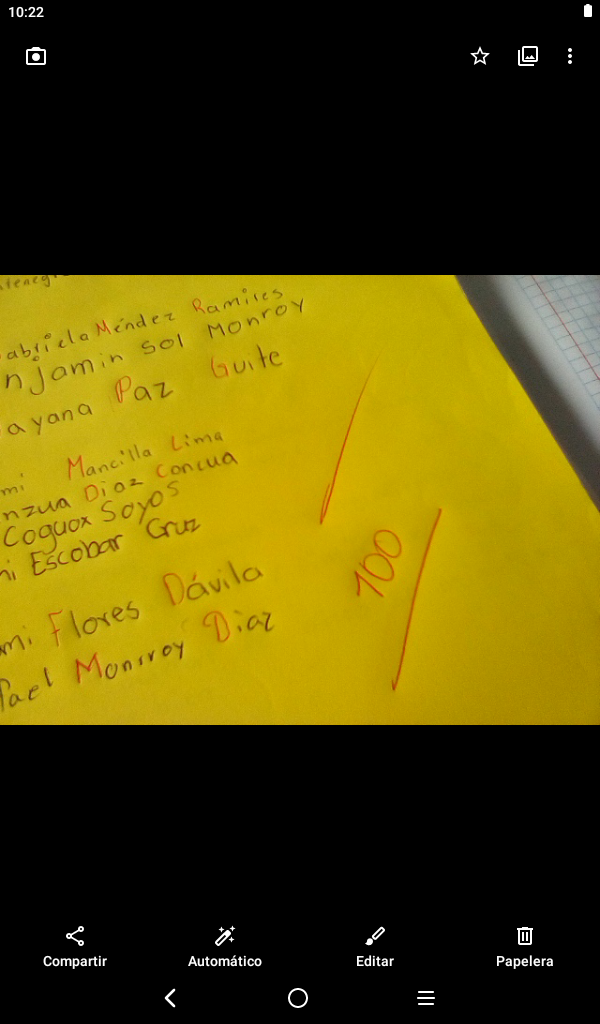 10:22
abriela Méndez Ramires
njamin Sol Monroy
ayana Paz Guite
mi Mancilla Lima
nzua Diaz Concua
Coguox Soyos
ni Escobar Cruz
mi Flores Dávila
fael Monrroy Diaz
100
Compartir
Automático
Editar
Papelera